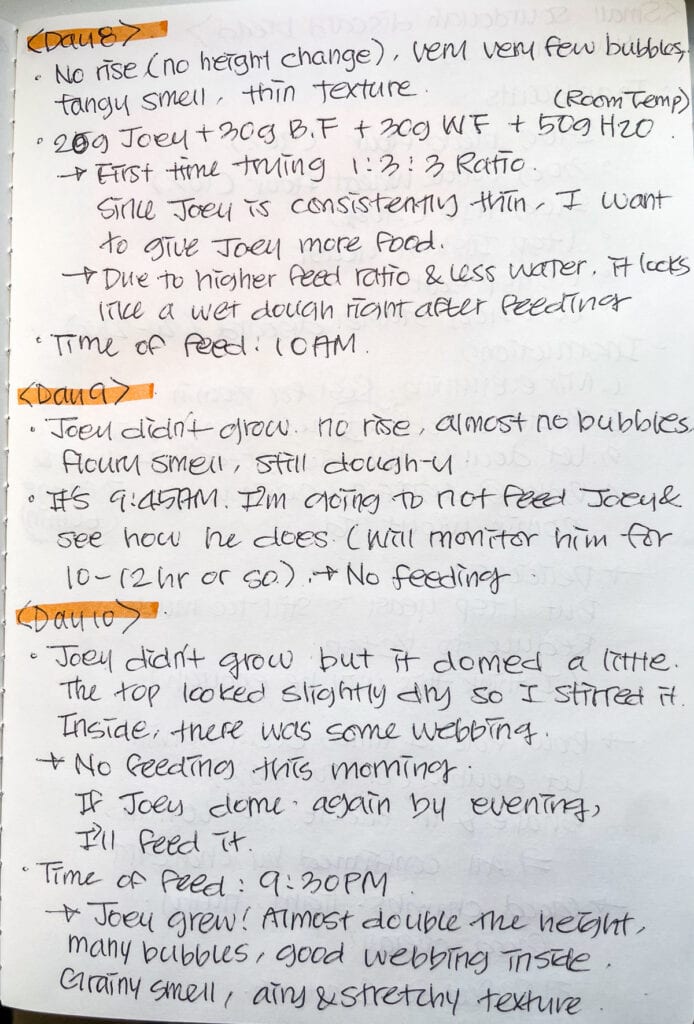 <Day 8>
• No rise (no height change), very very few bubbles,
tangy smell, thin texture.
(Room Temp)
• 20g Joey + 30g B.F + 30g WF + 50g H2O.
→ First time trying 1:3:3 Ratio.
Since Joey is consistently thin, I want
to give Joey more food.
→ Due to higher feed ratio & less water, it looks
like a wet dough right after feeding
• Time of feed: 10AM.
<Day 9>
• Joey didn't grow. no rise, almost no bubbles
floury smell, still dough-y
• It's 9:45AM. I'm going to not feed Joey &
see how he does. (Will monitor him for
10-12hr or so.). → No feeding
<Day 10>
• Joey didn't grow but it domed a little.
The top looked slightly dry so I stirred it.
Inside, there was some webbing.
→ No feeding this morning.
If Joey dome again by evening,
I'll feed it.
• Time of feed: 9:30PM
→ Joey grew! Almost double the height,
many bubbles, good webbing inside.
Grainy smell, airy & stretchy texture.